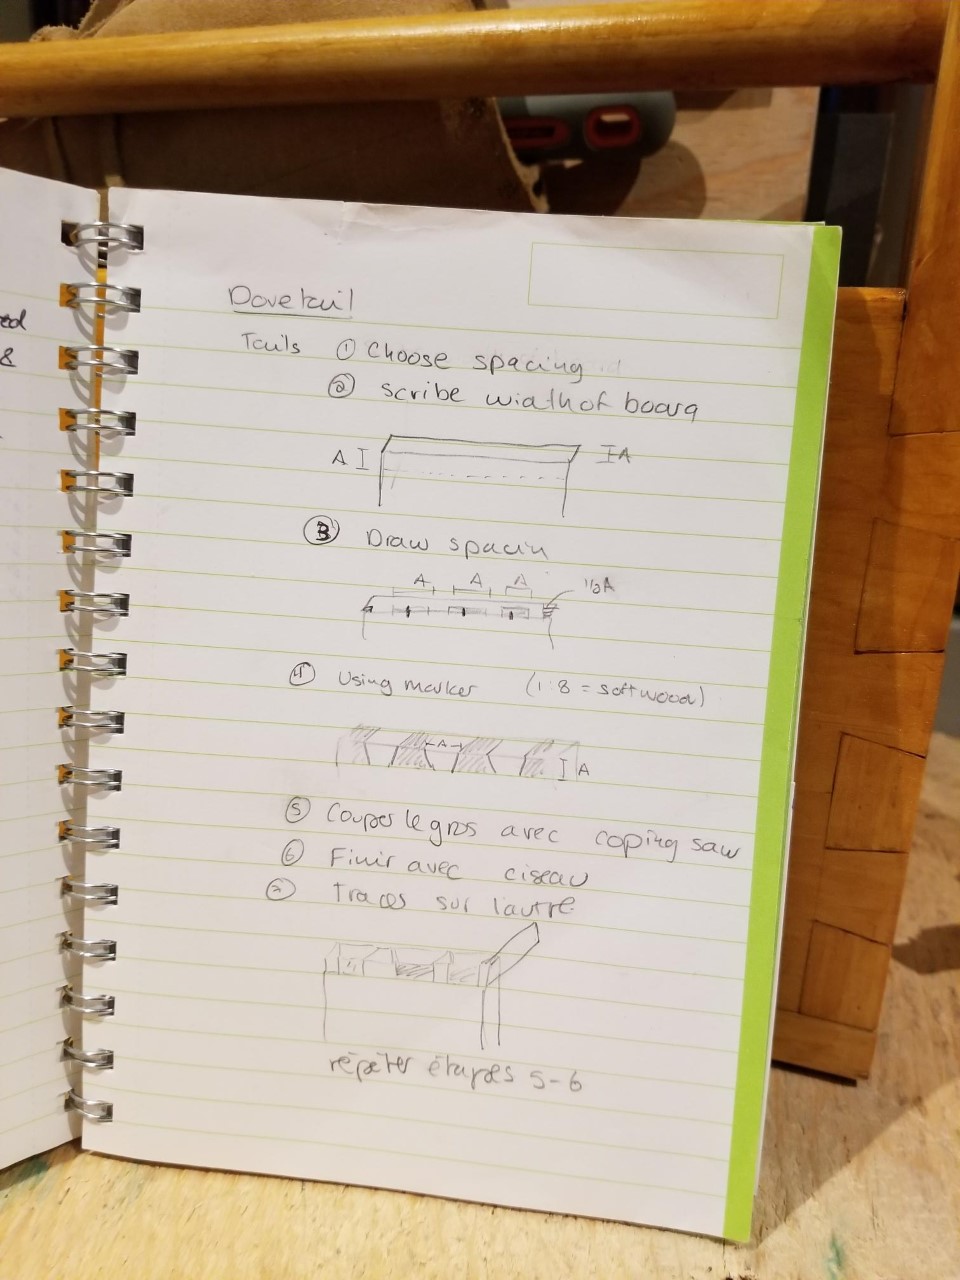 ed
&
Dovetail
Tails ① Choose spacing
② scribe width of board
A I I A
③ Draw spacin
A A A 1/2A
④ Using marker (1:8 = softwood)
A I A
⑤ Couper le gros avec coping saw
⑥ Finir avec ciseau
⑦ Traces sur l'autre
répéter étapes 5-6